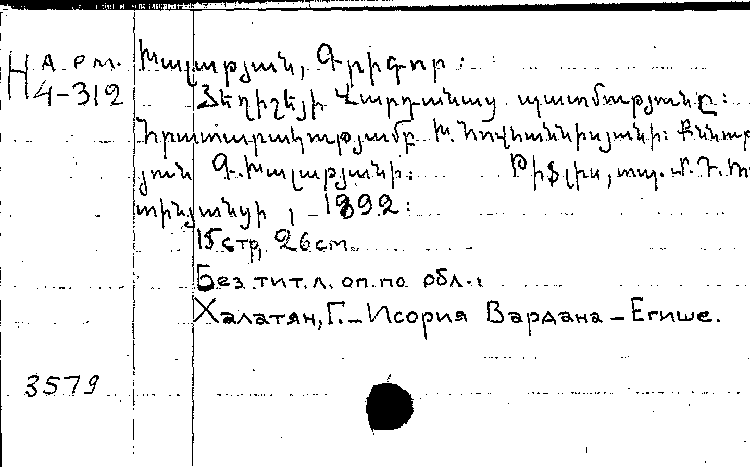 Н арм.
4-312
Խալաթյան, Գրիգոր:
Եղիշեյի Վարդանաց պատմությունը:
Հրատարակությամբ Խ. Հովհաննիսյանի: Քննութ
յուն Գ. Խալաթյանի: Թիֆլիս, տպ.
տինյանցի, 1892:
15 стр, 26 см.
Без тит.л. оп.по обл.:
Халатян, Г. – Исория Вардана – Егише.
3579